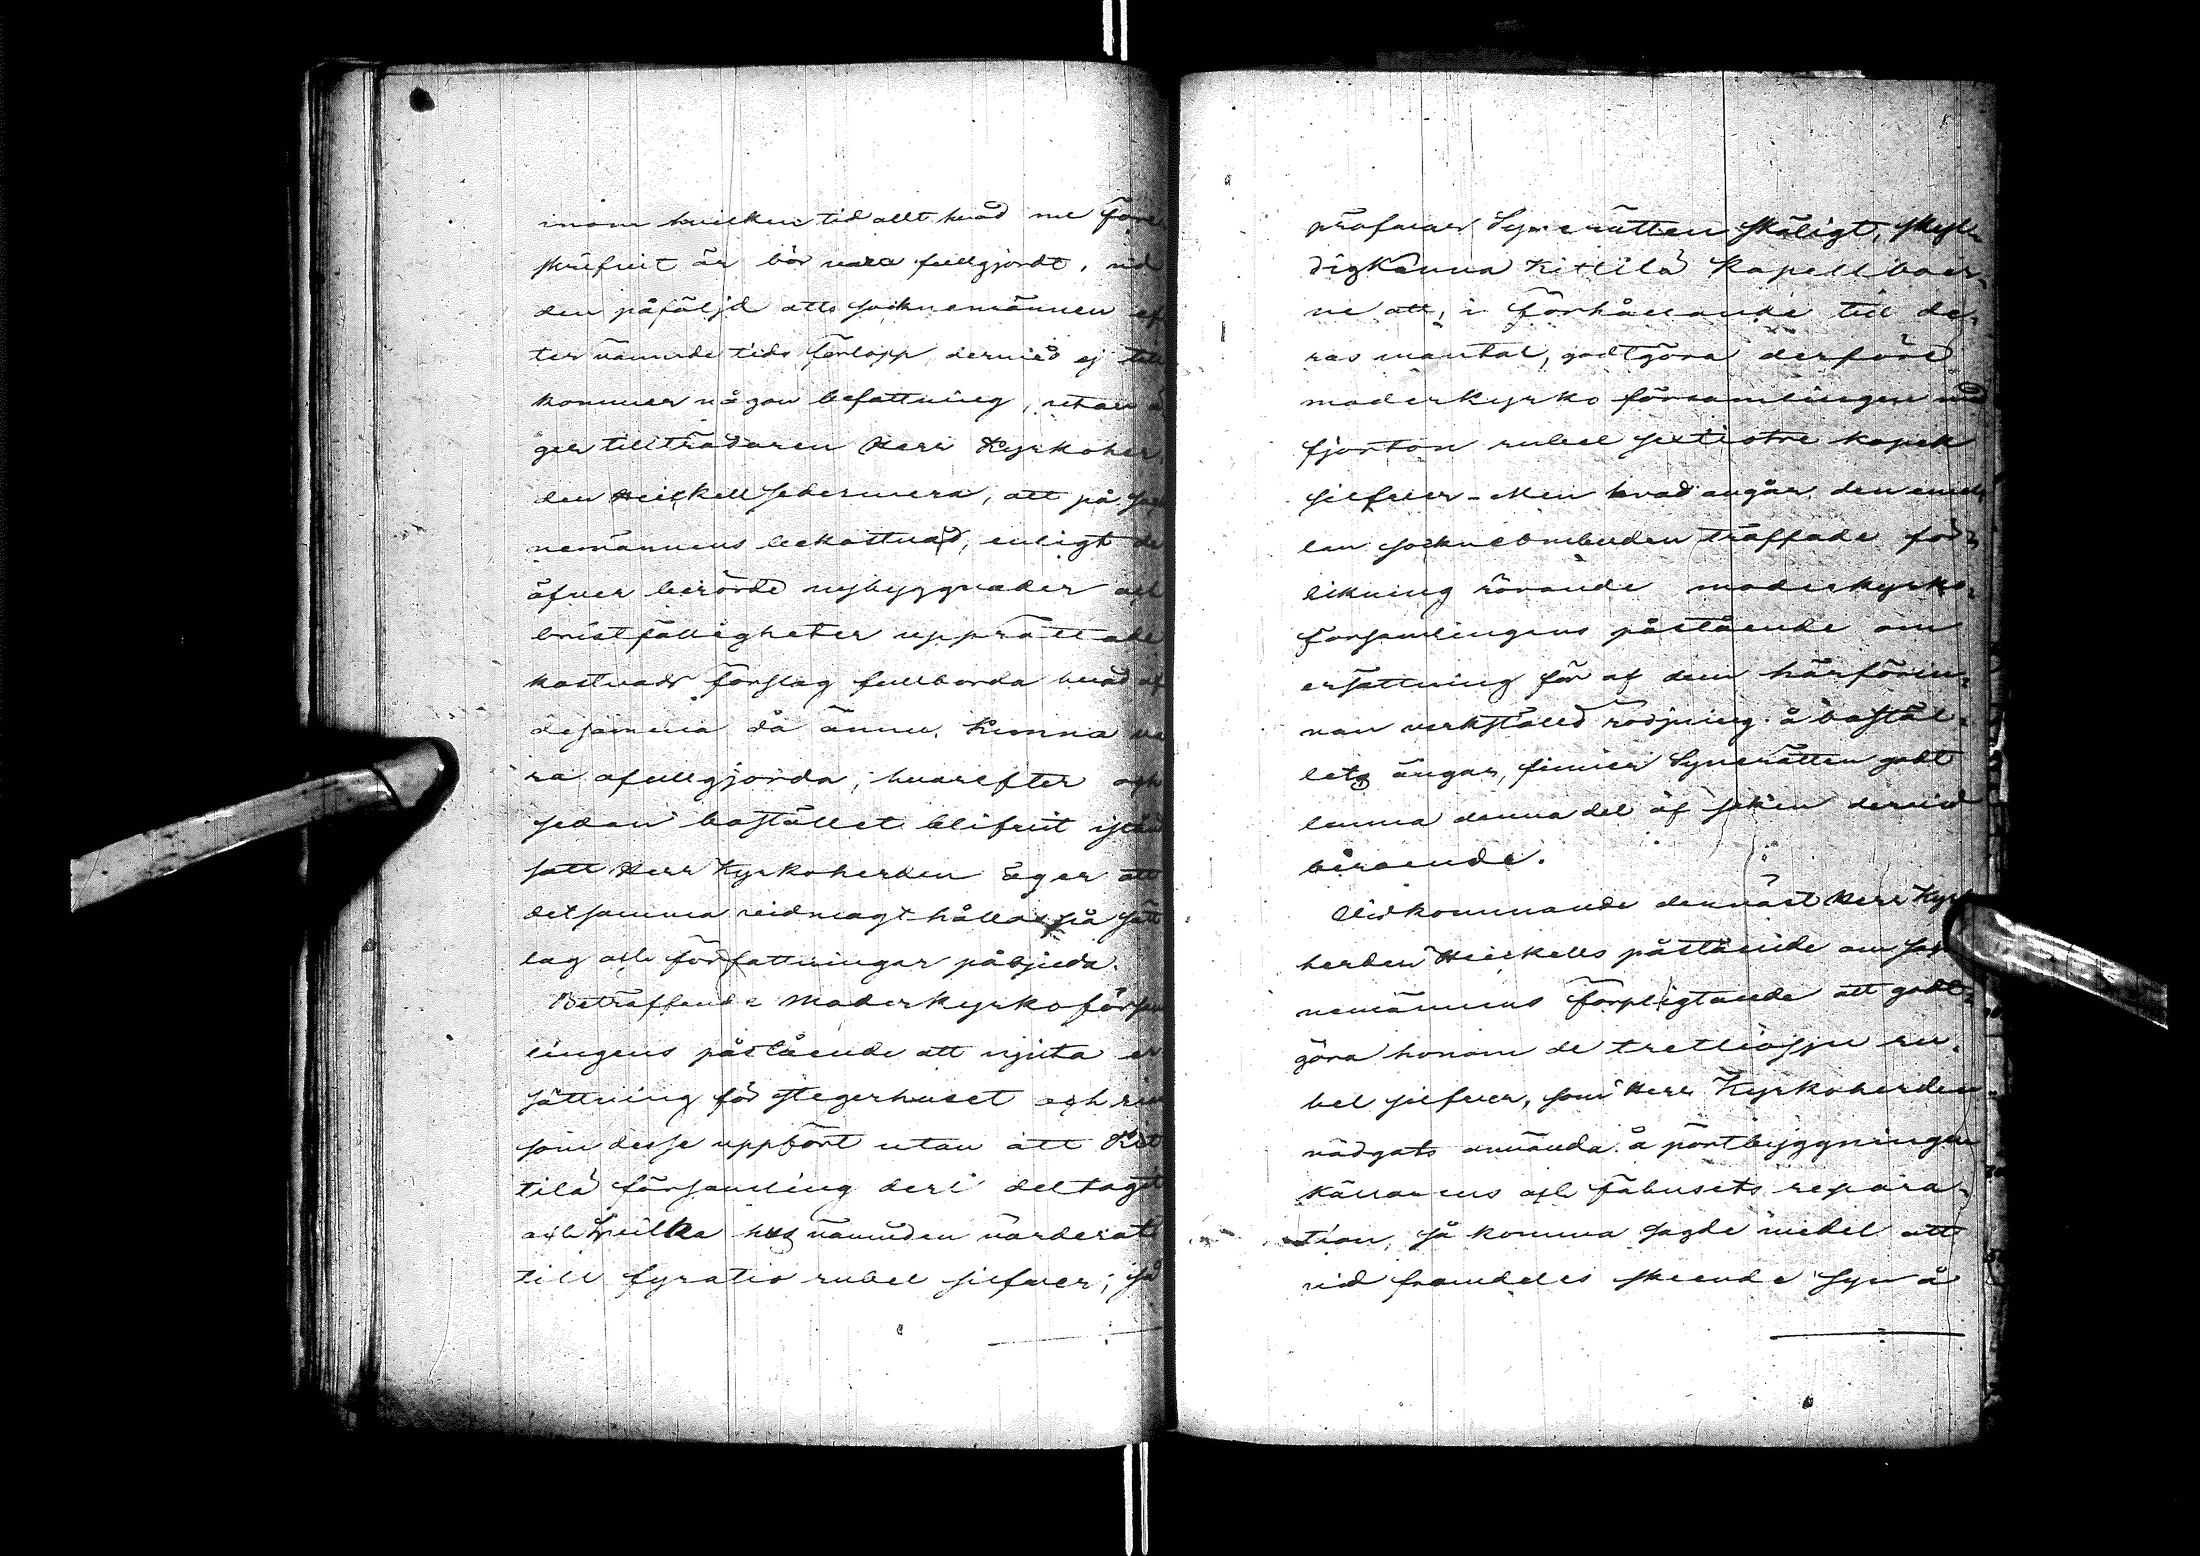 inom hvilken tid allt hvad nu före
skrifvit är bör vara fullgjordt, vid
den påföljd att socknemännen ef
ter nämnde tids förlopp dermed ej till
kommer någon befattning, utan ä
ger tillträdaren Herr Kyrkoher
den Heickell sedermera, att på sock
nemännens bekostnad, enligt de
öfver berörde nybyggnader och
bristfälligheter upprättade
kostnads förslag fullborda hvad af
desamma då ännu kunna va
ra ofullgjorda, hvarefter och
sedan bostället blifvit i stånd
satt Herr Kyrkoherden äger att
detsamma vidmagt hålla på sätt
lag och författningar påbjuda.
Beträffande Moderkyrkoförsam
lingens påstående att njuta er
sättning för stegerhuset och
som desse uppfört utan att Kit
tilä församling deri deltagit
och hvilka nämnden värderat
till fyratio rubel silfver; så
pröfvar Synerätten skäligt, skyl
digkänna Kittilä Kapellboer
ne att, i förhållande till de
ras mantal, godtgöra derföre
moderkyrko församlingen med
fjorton rubel sextiotre kopek
silfver - Men hvad angår den emel
lan sockneombuden träffade för
likning rörande moderkyrko
församlingens påstående om
ersättning för af dem härförin
nan verkställd rödjning å bostäl
lets ängar, finner Synerätten godt
lemna denna del af saken dervid
beroende.
Vidkommande dernäst Herr Kyrko
herden Heickells påstående om sock
nemännens förpligtande att godt
göra honom de trettiosju ru
bel silfver, som Herr Kyrkoherden
nödgats använda å pörtbyggningen
källarens och fähusets repara
tion, så komma sagde medel att
vid framdeles skeende syn å